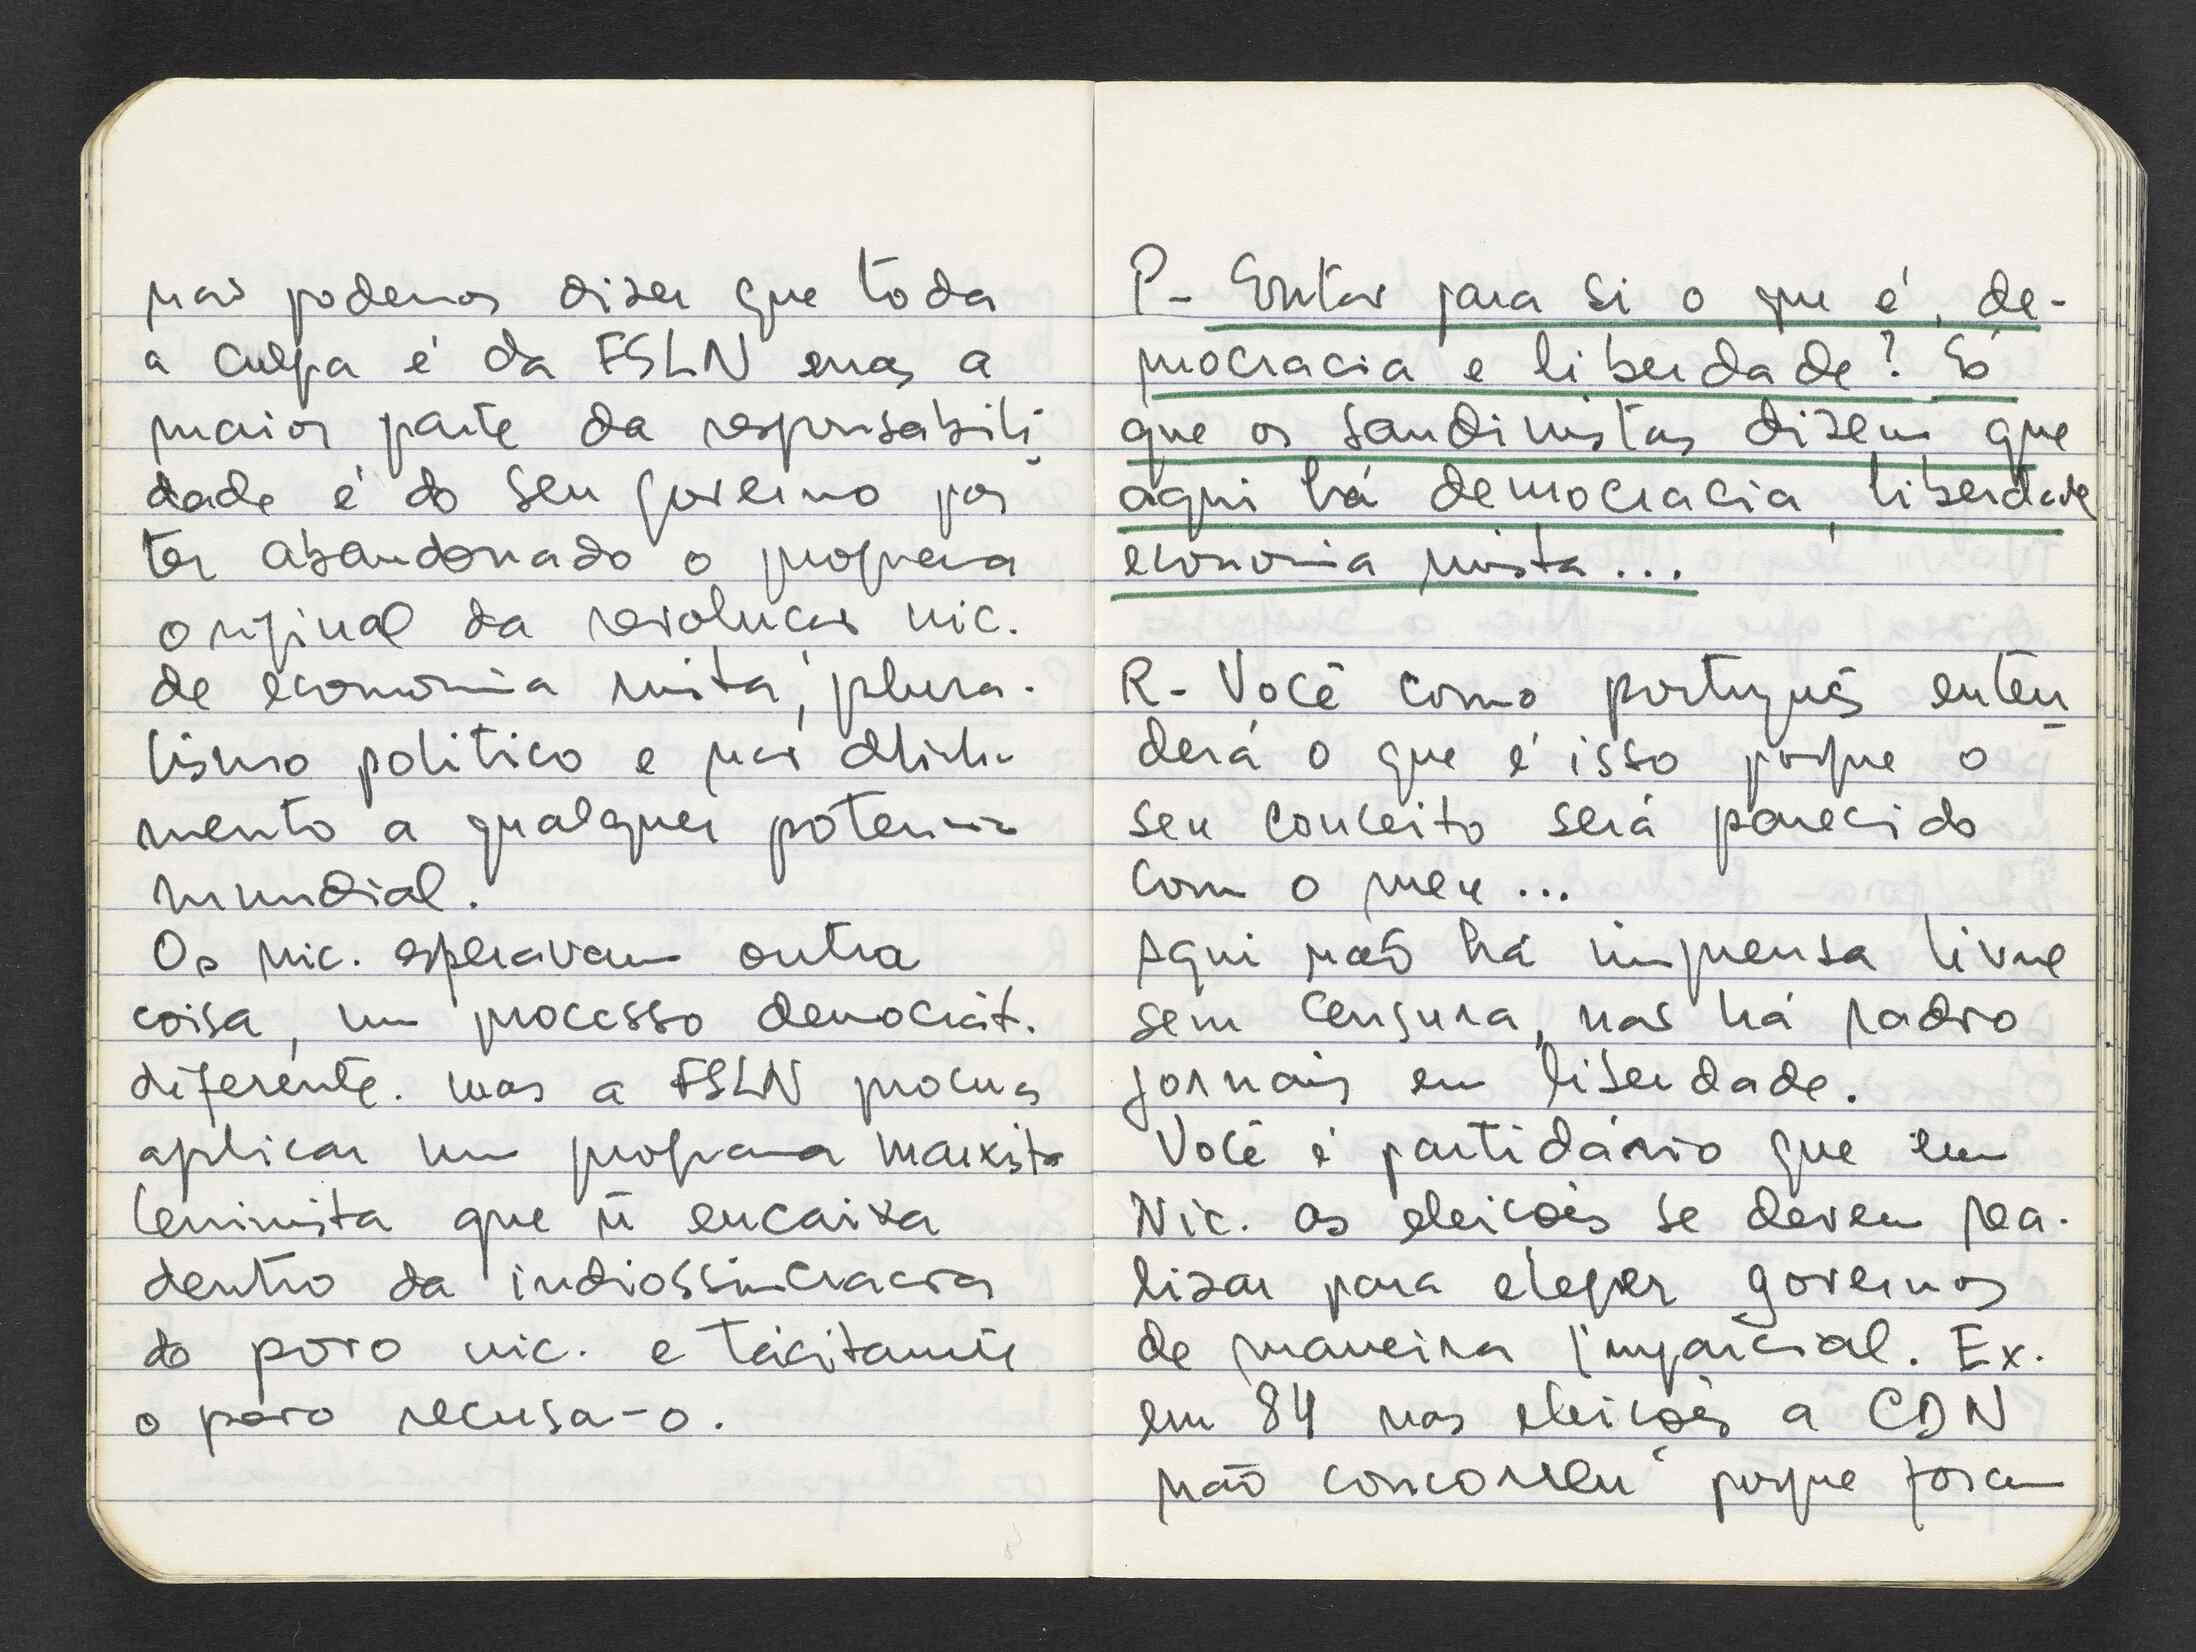 não podemos dizer que toda
a culpa é da FSLN mas a
maior parte da responsabili
dade é do seu governo por
ter abandonado o programa
original da revolução nic.
de economia mista, plura-
lismo politico e não alinha
mento a qualquer potencia
mundial.
Os nic. esperavam outra
coisa, um processo democrát.
diferente. mas a FSLN procura
aplicar um programa marxista
leninista que ñ encaixa
dentro da indiossincracia
do povo nic. e tácitamte
o povo recusa-o.
P- Então para si o que é, de-
mocracia e liberdade? É
que os sandinistas dizem que
aqui há democracia, liberdade
economia mista...
R- Você como português enten
derá o que é isso porque o
seu conceito será parecido
com o meu...
Aqui não há imprensa livre
sem censura, não há radio
jornais em liberdade.
Você é partidário que em
Nic. as eleições se devem rea-
lizar para eleger governos
de maneira imparcial. Ex.
em 84 nas eleições a CDN
não concorreu porque foram